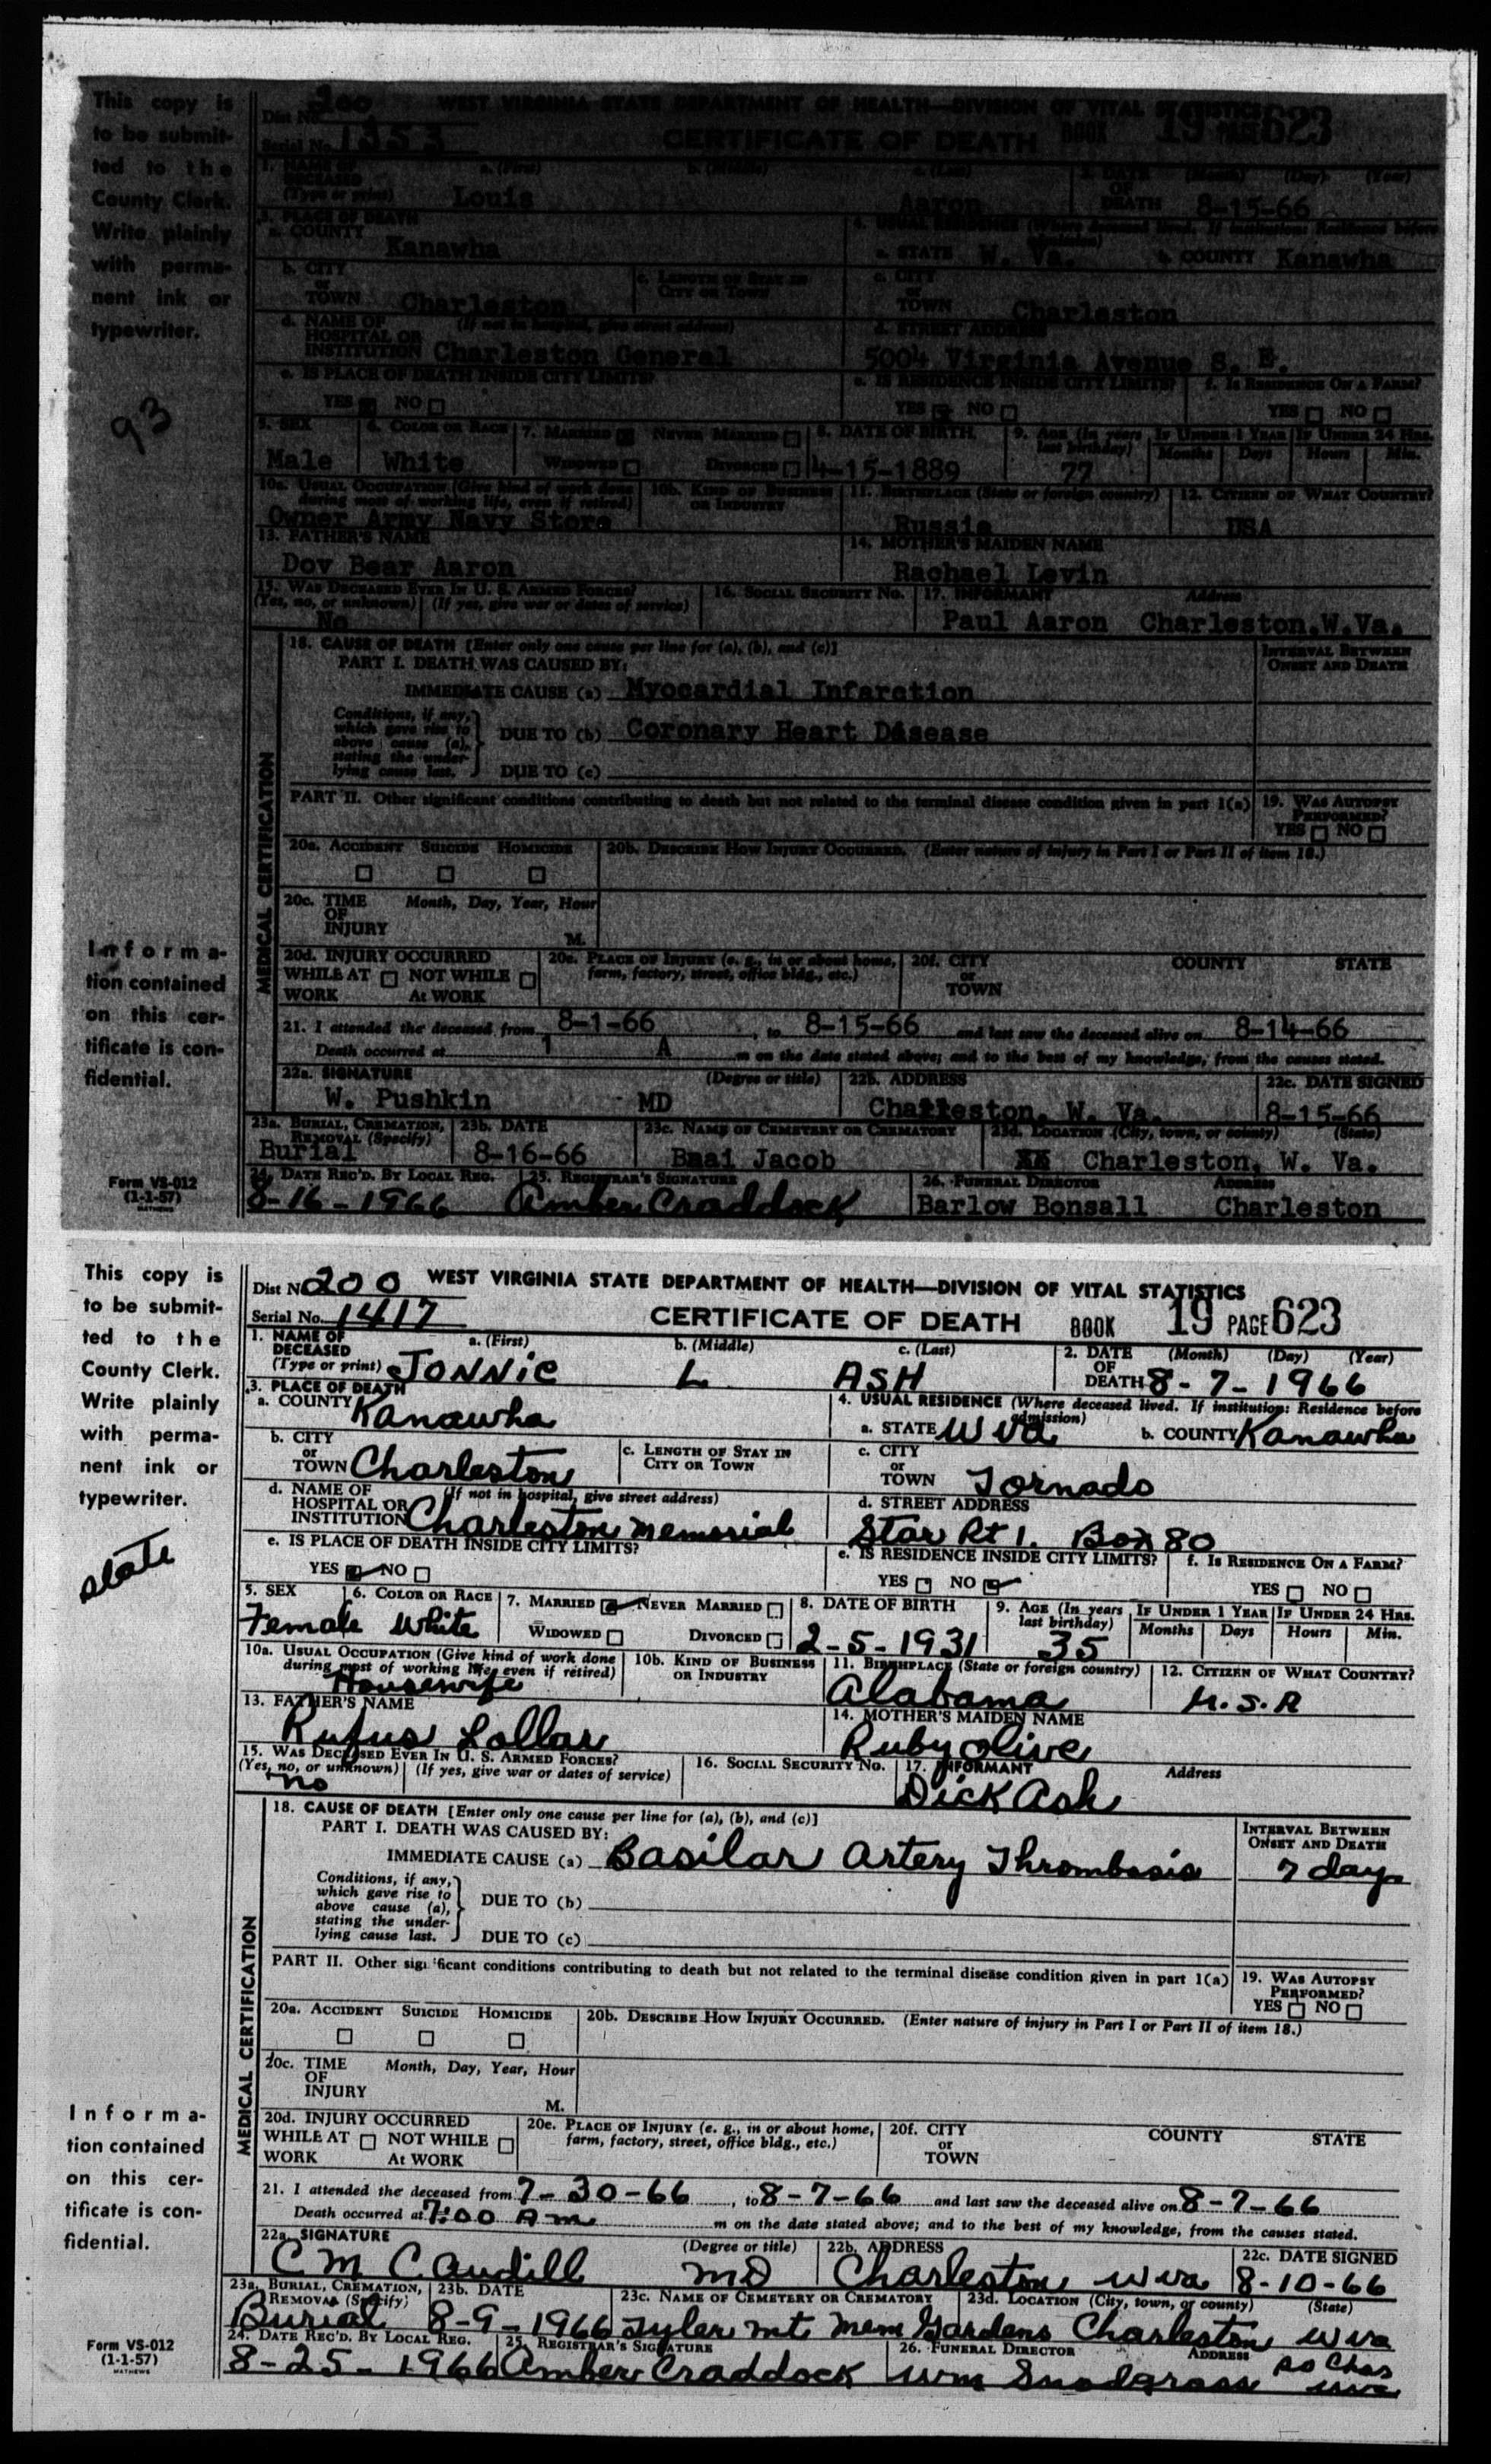 This copy is
to be submit-
ted to the
County Clerk.
Write plainly
with perma-
nent ink or
typewriter.
93
Informa-
tion contained
on this cer-
tificate is con-
fidential.
Form VS-012
(1-1-57)
MATHEWS
Dist No. 200 WEST VIRGINIA STATE DEPARTMENT OF HEALTH—DIVISION OF VITAL STATISTICS
Serial No. 1353 CERTIFICATE OF DEATH BOOK 19 PAGE 623
1. NAME OF DECEASED (Type or print) a. (First) b. (Middle) c. (Last) 2. DATE OF DEATH (Month) (Day) (Year)
Louis Aaron 8-15-66
3. PLACE OF DEATH 4. USUAL RESIDENCE (Where deceased lived. If institution: Residence before admission)
a. COUNTY Kanawha a. STATE W. Va. b. COUNTY Kanawha
b. CITY or TOWN Charleston c. LENGTH OF STAY IN CITY OR TOWN c. CITY or TOWN Charleston
d. NAME OF HOSPITAL OR INSTITUTION (If not in hospital, give street address) Charleston General d. STREET ADDRESS 5004 Virginia Avenue S. E.
e. IS PLACE OF DEATH INSIDE CITY LIMITS? e. IS RESIDENCE INSIDE CITY LIMITS? f. IS RESIDENCE ON A FARM?
YES NO YES NO YES NO
5. SEX 6. COLOR OR RACE 7. MARRIED NEVER MARRIED 8. DATE OF BIRTH 9. AGE (In years last birthday) IF UNDER 1 YEAR IF UNDER 24 HRS.
Male White WIDOWED DIVORCED 4-15-1889 77 Months Days Hours Min.
10a. USUAL OCCUPATION (Give kind of work done during most of working life, even if retired) 10b. KIND OF BUSINESS OR INDUSTRY 11. BIRTHPLACE (State or foreign country) 12. CITIZEN OF WHAT COUNTRY?
Owner Army Navy Store Russia USA
13. FATHER'S NAME 14. MOTHER'S MAIDEN NAME
Dov Bear Aaron Rachael Levin
15. WAS DECEASED EVER IN U. S. ARMED FORCES? 16. SOCIAL SECURITY NO. 17. INFORMANT Address
(Yes, no, or unknown) (If yes, give war or dates of service)
No Paul Aaron Charleston, W.Va.
MEDICAL CERTIFICATION
18. CAUSE OF DEATH [Enter only one cause per line for (a), (b), and (c)] INTERVAL BETWEEN ONSET AND DEATH
PART I. DEATH WAS CAUSED BY:
IMMEDIATE CAUSE (a) Myocardial Infarction
Conditions, if any, which gave rise to above cause (a), stating the under-lying cause last.
DUE TO (b) Coronary Heart Disease
DUE TO (c)
PART II. Other significant conditions contributing to death but not related to the terminal disease condition given in part 1(a) 19. WAS AUTOPSY PERFORMED?
YES NO
20a. ACCIDENT SUICIDE HOMICIDE 20b. DESCRIBE HOW INJURY OCCURRED. (Enter nature of injury in Part I or Part II of item 18.)
20c. TIME OF INJURY Month, Day, Year, Hour
M.
20d. INJURY OCCURRED 20e. PLACE OF INJURY (e. g., in or about home, farm, factory, street, office bldg., etc.) 20f. CITY or TOWN COUNTY STATE
WHILE AT WORK NOT WHILE At WORK
21. I attended the deceased from 8-1-66, to 8-15-66 and last saw the deceased alive on 8-14-66
Death occurred at 1 A m on the date stated above; and to the best of my knowledge, from the causes stated.
22a. SIGNATURE (Degree or title) 22b. ADDRESS 22c. DATE SIGNED
W. Pushkin MD Charleston, W. Va. 8-15-66
23a. BURIAL, CREMATION, REMOVAL (Specify) 23b. DATE 23c. NAME OF CEMETERY OR CREMATORY 23d. LOCATION (City, town, or county) (State)
Burial 8-16-66 Bnai Jacob Charleston, W. Va.
24. DATE REC'D. BY LOCAL REG. 25. REGISTRAR'S SIGNATURE 26. FUNERAL DIRECTOR ADDRESS
8-16-1966 Amber Craddock Barlow Bonsall Charleston
This copy is
to be submit-
ted to the
County Clerk.
Write plainly
with perma-
nent ink or
typewriter.
state
Informa-
tion contained
on this cer-
tificate is con-
fidential.
Form VS-012
(1-1-57)
MATHEWS
Dist No 200 WEST VIRGINIA STATE DEPARTMENT OF HEALTH—DIVISION OF VITAL STATISTICS
Serial No. 1417 CERTIFICATE OF DEATH BOOK 19 PAGE 623
1. NAME OF DECEASED (Type or print) a. (First) b. (Middle) c. (Last) 2. DATE OF DEATH (Month) (Day) (Year)
JONNIE L ASH 8-7-1966
3. PLACE OF DEATH 4. USUAL RESIDENCE (Where deceased lived. If institution: Residence before admission)
a. COUNTY Kanawha a. STATE W Va b. COUNTY Kanawha
b. CITY or TOWN Charleston c. LENGTH OF STAY IN CITY OR TOWN c. CITY or TOWN Tornado
d. NAME OF HOSPITAL OR INSTITUTION (If not in hospital, give street address) Charleston Memorial d. STREET ADDRESS Star Rt 1. Box 80
e. IS PLACE OF DEATH INSIDE CITY LIMITS? e. IS RESIDENCE INSIDE CITY LIMITS? f. IS RESIDENCE ON A FARM?
YES NO YES NO YES NO
5. SEX 6. COLOR OR RACE 7. MARRIED NEVER MARRIED 8. DATE OF BIRTH 9. AGE (In years last birthday) IF UNDER 1 YEAR IF UNDER 24 HRS.
Female White WIDOWED DIVORCED 2-5-1931 35 Months Days Hours Min.
10a. USUAL OCCUPATION (Give kind of work done during most of working life, even if retired) 10b. KIND OF BUSINESS OR INDUSTRY 11. BIRTHPLACE (State or foreign country) 12. CITIZEN OF WHAT COUNTRY?
Housewife Alabama U.S.A
13. FATHER'S NAME 14. MOTHER'S MAIDEN NAME
Rufus Lollar Ruby Olive
15. WAS DECEASED EVER IN U. S. ARMED FORCES? 16. SOCIAL SECURITY NO. 17. INFORMANT Address
(Yes, no, or unknown) (If yes, give war or dates of service)
no Dick Ash
MEDICAL CERTIFICATION
18. CAUSE OF DEATH [Enter only one cause per line for (a), (b), and (c)] INTERVAL BETWEEN ONSET AND DEATH
PART I. DEATH WAS CAUSED BY:
IMMEDIATE CAUSE (a) Basilar Artery Thrombosis 7 days
Conditions, if any, which gave rise to above cause (a), stating the under-lying cause last.
DUE TO (b)
DUE TO (c)
PART II. Other significant conditions contributing to death but not related to the terminal disease condition given in part 1(a) 19. WAS AUTOPSY PERFORMED?
YES NO
20a. ACCIDENT SUICIDE HOMICIDE 20b. DESCRIBE HOW INJURY OCCURRED. (Enter nature of injury in Part I or Part II of item 18.)
20c. TIME OF INJURY Month, Day, Year, Hour
M.
20d. INJURY OCCURRED 20e. PLACE OF INJURY (e. g., in or about home, farm, factory, street, office bldg., etc.) 20f. CITY or TOWN COUNTY STATE
WHILE AT WORK NOT WHILE At WORK
21. I attended the deceased from 7-30-66, to 8-7-66 and last saw the deceased alive on 8-7-66
Death occurred at 7:00 Am m on the date stated above; and to the best of my knowledge, from the causes stated.
22a. SIGNATURE (Degree or title) 22b. ADDRESS 22c. DATE SIGNED
C M Caudill MD Charleston W Va 8-10-66
23a. BURIAL, CREMATION, REMOVAL (Specify) 23b. DATE 23c. NAME OF CEMETERY OR CREMATORY 23d. LOCATION (City, town, or county) (State)
Burial 8-9-1966 Tyler Mt Mem Gardens Charleston W Va
24. DATE REC'D. BY LOCAL REG. 25. REGISTRAR'S SIGNATURE 26. FUNERAL DIRECTOR ADDRESS
8-25-1966 Amber Craddock Wm Snodgrass So Chas W Va